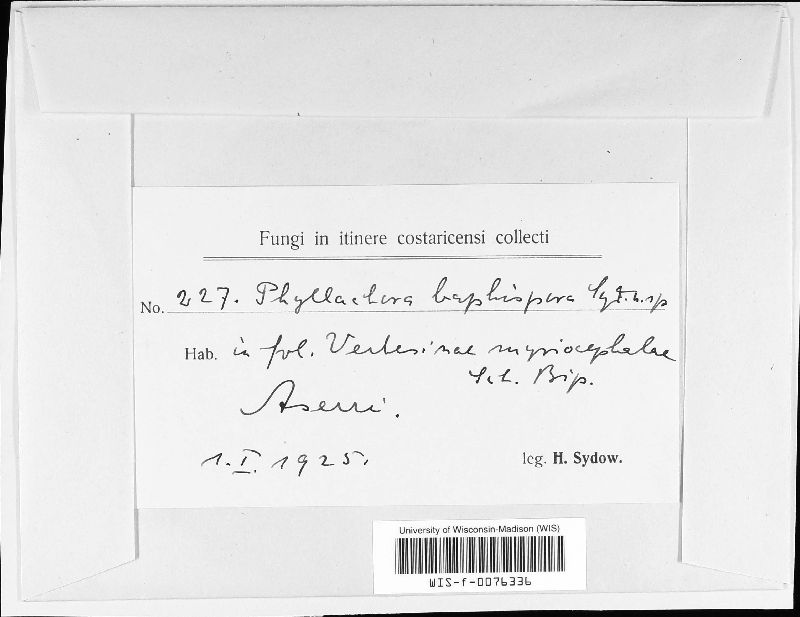 Fungi in itinere costaricensi collecti
No. 227. Phyllachora baphispora Syd. n. sp
Hab. in fol. Verbesinae myriocephalae
Sch. Bip.
Aserri.
1.I.1925.
leg. H. Sydow.
University of Wisconsin-Madison (WIS)
WIS-f-0076336